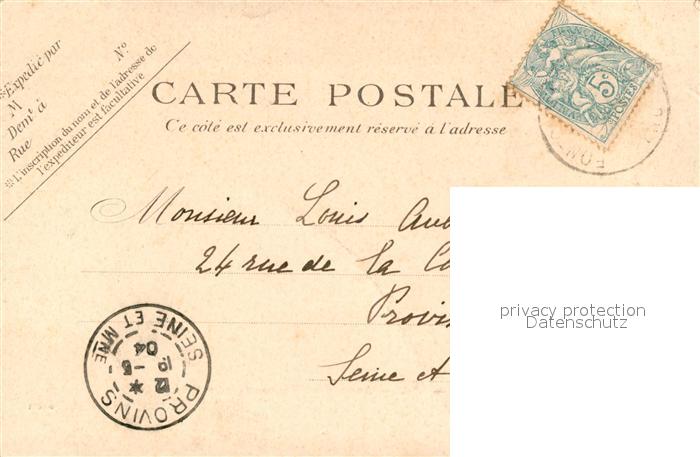 Expédié par
M
Demt à
Rue No
L'inscription du nom et de l'adresse de
l'expéditeur est facultative
CARTE POSTALE
Ce côté est exclusivement réservé à l'adresse
5c
POSTES
Monsieur Louis
24 rue de la
Provins
Seine et
PROVINS
SEINE ET MNE
12 5
04
privacy protection
Datenschutz